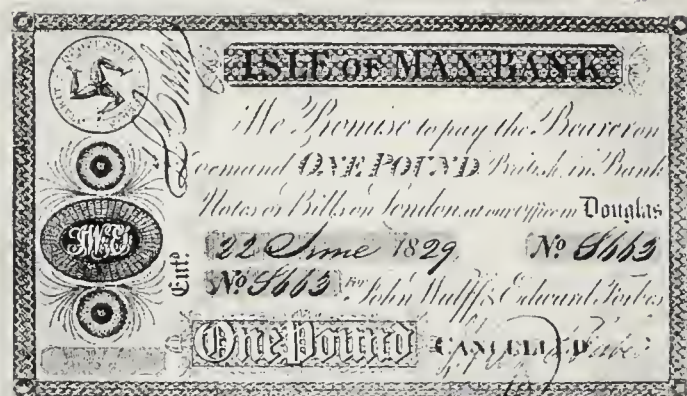 QUOCUNQUE JECERIS STABIT
ISLE OF MAN BANK
We Promise to pay the Bearer on
Demand ONE POUND British in Bank
Notes or Bills on London at our office in Douglas
22 June 1829 No 8663
Entd. No 8663 For John Wulff & Edward Forbes
One Pound CANCELLED